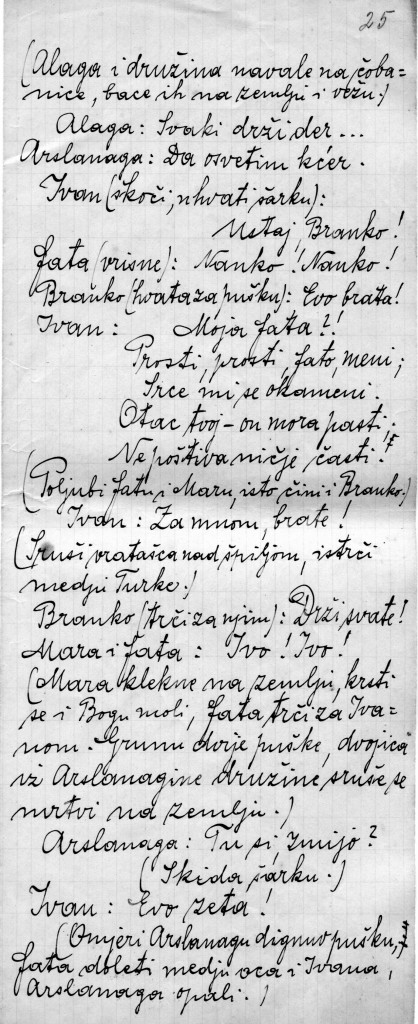 25
(Alaga i družina navale na čoba=
nice, bace ih na zemlju i vežu.)
Alaga: Svaki drži der...
Arslanaga: Da osvetim kćer.
Ivan (skoči; uhvati šarku):
Ustaj, Branko!
Fata (vrisne): Nanko! Nanko!
Branko (hvata za pušku): Evo brata!
Ivan: Moja Fata?!
Prosti, prosti, Fato, meni;
Srce mi se okameni.
Otac tvoj - on mora pasti;
Ne poštiva ničje časti!
(Poljubi Fatu i Maru, isto čini i Branko.)
Ivan: Za mnom, brate!
(Sruši vratašca nad špiljom, istrči
medju Turke.)
Branko (trči za njim): Drži svate!
Mara i Fata: Ivo! Ivo!
(Mara klekne na zemlju, krsti
se i Bogu moli, Fata trči za Iva=
nom. Grunu dvije puške, dvojica
iz Arslanagine družine sruše se
mrtvi na zemlju.)
Arslanaga: Tu si, zmijo?
(Skida šarku.)
Ivan: Evo zeta!
(Omjeri Arslanagu dignuv pušku,
Fata doleti medju oca i Ivana,
Arslanaga opali.)